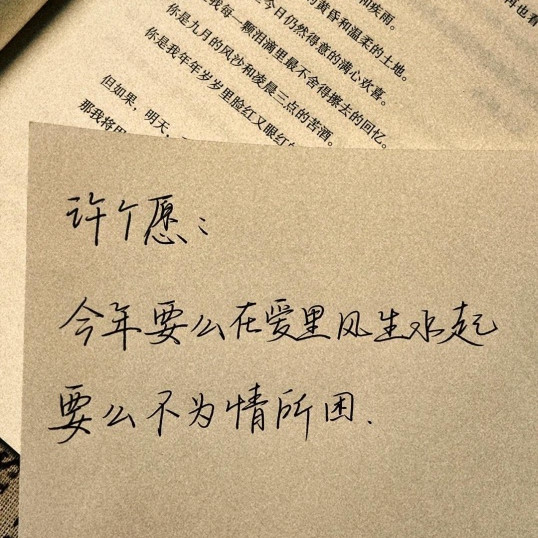 再也看
和疾雨。
的黄昏和温柔的土地。
今日仍然得意的满心欢喜。
我每一颗泪滴里最不舍得擦去的回忆。
你是九月的风沙和凌晨三点的苦酒。
你是我年年岁岁里脸红又眼红
但如果，明天，
那我将
许个愿：
今年要么在爱里风生水起
要么不为情所困.